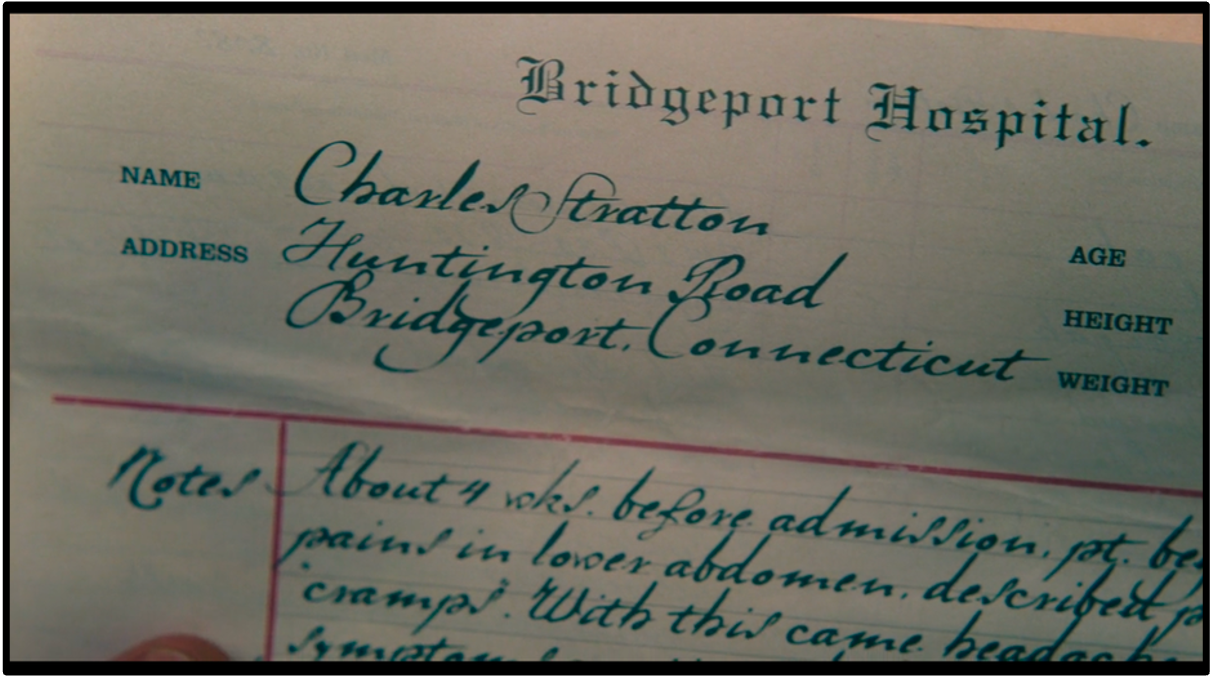 Bridgeport Hospital.
NAME Charles Stratton
AGE
ADDRESS Huntington Road
HEIGHT
Bridgeport, Connecticut
WEIGHT
Notes About 4 wks. before admission, pt.
pains in lower abdomen, described
"cramps". With this came